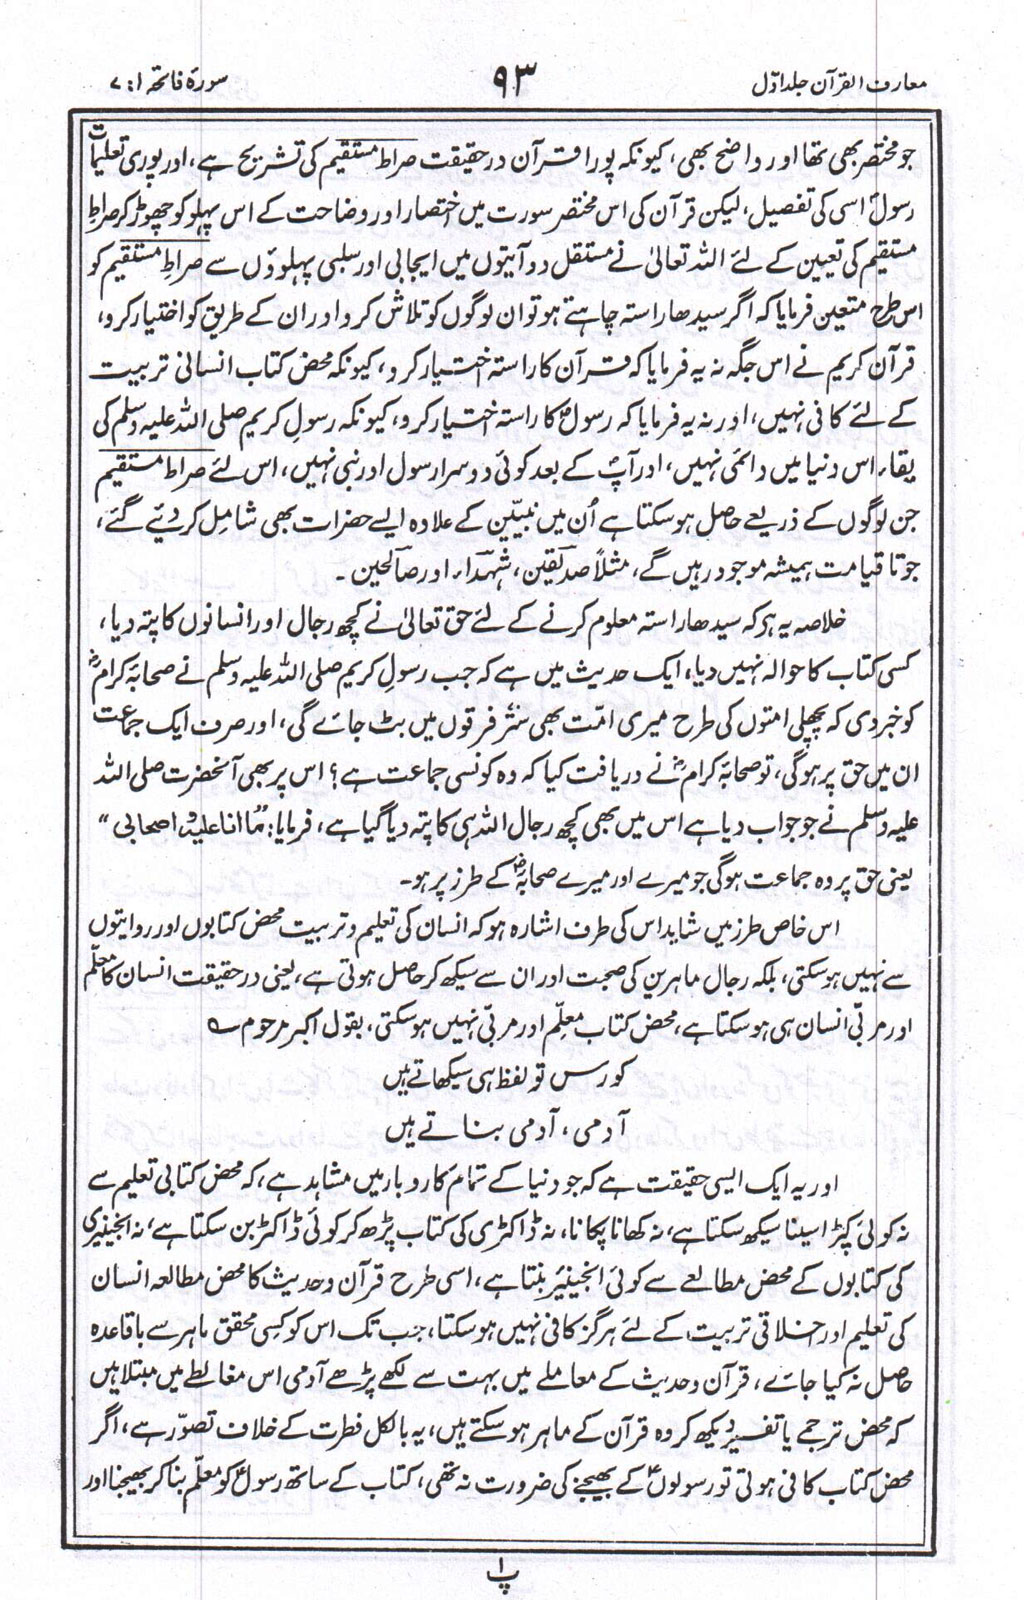 معارف القرآن جلد اوّل
۹۳
سورۂ فاتحہ ۱: ۷
جو مختصر بھی تھا اور واضح بھی، کیونکہ پورا قرآن درحقیقت صراط مستقیم کی تشریح ہے، اور پوری تعلیمات
رسولؐ اسی کی تفصیل، لیکن قرآن کی اس مختصر سورت میں اختصار اور وضاحت کے اس پہلو کو چھوڑ کر صراطِ
مستقیم کی تعیین کے لئے اللہ تعالیٰ نے مستقل دو آیتوں میں ایجابی اور سلبی پہلوؤں سے صراطِ مستقیم کو
اس طرح متعین فرمایا کہ اگر سیدھا راستہ چاہتے ہو تو ان لوگوں کو تلاش کرو اور ان کے طریق کو اختیار کرو،
قرآن کریم نے اس جگہ نہ یہ فرمایا کہ قرآن کا راستہ اختیار کرو، کیونکہ محض کتاب انسانی تربیت
کے لئے کافی نہیں، اور نہ یہ فرمایا کہ رسولؐ کا راستہ اختیار کرو، کیونکہ رسولِ کریم صلی اللہ علیہ وسلم کی
بقاء اس دنیا میں دائمی نہیں، اور آپؐ کے بعد کوئی دوسرا رسول اور نبی نہیں، اس لئے صراط مستقیم
جن لوگوں کے ذریعے حاصل ہو سکتا ہے اُن میں نبیّین کے علاوہ ایسے حضرات بھی شامل کر دیئے گئے،
جو تا قیامت ہمیشہ موجود رہیں گے، مثلاً صدیقین، شہداء اور صالحین ۔
خلاصہ یہ ہو کہ سیدھا راستہ معلوم کرنے کے لئے حق تعالیٰ نے کچھ رجال اور انسانوں کا پتہ دیا،
کسی کتاب کا حوالہ نہیں دیا، ایک حدیث میں ہے کہ جب رسولِ کریم صلی اللہ علیہ وسلم نے صحابۂ کرامؓ
کو خبر دی کہ پچھلی امتوں کی طرح میری امّت بھی ستّر فرقوں میں بٹ جائے گی، اور صرف ایک جماعت
ان میں حق پر ہوگی، تو صحابۂ کرامؓ نے دریافت کیا کہ وہ کونسی جماعت ہے؟ اس پر بھی آنحضرت صلی اللہ
علیہ وسلم نے جو جواب دیا ہے اس میں بھی کچھ رجال اللہ ہی کا پتہ دیا گیا ہے، فرمایا: ”ما انا علیہ و اصحابی“
یعنی حق پر وہ جماعت ہوگی جو میرے اور میرے صحابہؓ کے طرز پر ہو۔
اس خاص طرز میں شاید اس کی طرف اشارہ ہو کہ انسان کی تعلیم و تربیت محض کتابوں اور روایتوں
سے نہیں ہو سکتی، بلکہ رجال ماہرین کی صحبت اور ان سے سیکھ کر حاصل ہوتی ہے، یعنی درحقیقت انسان کا معلّم
اور مربّی انسان ہی ہو سکتا ہے، محض کتاب معلّم اور مربّی نہیں ہو سکتی، بقول اکبر مرحوم ؎
کورس تو لفظ ہی سیکھاتے ہیں
آدمی، آدمی بناتے ہیں
اور یہ ایک ایسی حقیقت ہے کہ جو دنیا کے تمام کاروبار میں مشاہد ہے، کہ محض کتابی تعلیم سے
نہ کوئی کپڑا سینا سیکھ سکتا ہے، نہ کھانا پکانا، نہ ڈاکٹری کی کتاب پڑھ کر کوئی ڈاکٹر بن سکتا ہے، نہ انجینیری
کی کتابوں کے محض مطالعے سے کوئی انجینیئر بنتا ہے، اسی طرح قرآن و حدیث کا محض مطالعہ انسان
کی تعلیم اور اخلاقی تربیت کے لئے ہرگز کافی نہیں ہو سکتا، جب تک اس کو کسی محقق ماہر سے باقاعدہ
حاصل نہ کیا جائے، قرآن و حدیث کے معاملے میں بہت سے لکھے پڑھے آدمی اس مغالطے میں مبتلا ہیں
کہ محض ترجمے یا تفسیر دیکھ کر وہ قرآن کے ماہر ہو سکتے ہیں، یہ بالکل فطرت کے خلاف تصوّر ہے، اگر
محض کتاب کافی ہوتی تو رسولوںؑ کے بھیجنے کی ضرورت نہ تھی، کتاب کے ساتھ رسولؐ کو معلّم بنا کر بھیجنا اور
پ ۱